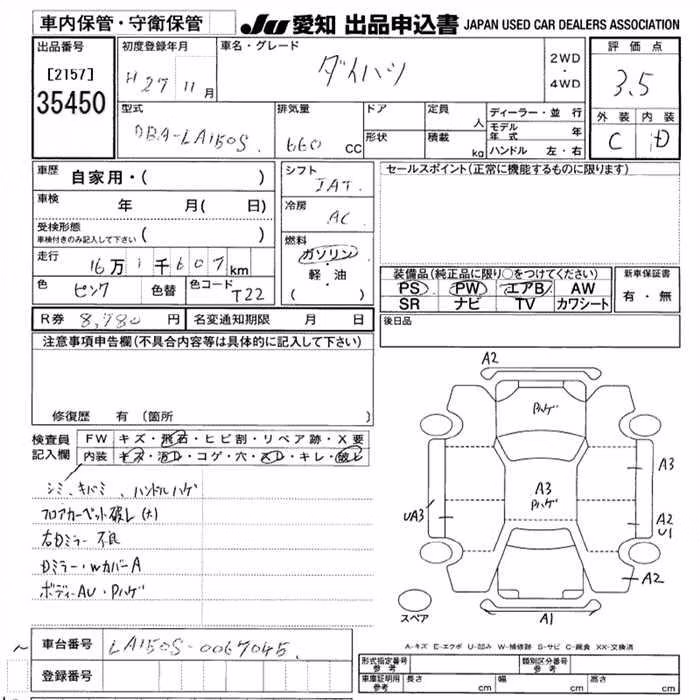 車内保管・守衛保管
JU 愛知 出品申込書 JAPAN USED CAR DEALERS ASSOCIATION
出品番号
[2157]
35450
初度登録年月
H 27 11月
車名・グレード
ダイハツ
2WD・4WD
評価点
3.5
型式
DBA-LA150S
排気量
660 cc
ドア
形状
定員 人
積載 kg
ディーラー・並行
モデル年式 年
ハンドル 左・右
外装 内装
C D
車歴 自家用・( )
シフト
IAT
セールスポイント(正常に機能するものに限ります)
車検 年 月( 日)
冷房
AC
受検形態
車検付きのみ記入して下さい ( )
燃料
ガソリン・軽・油
( )
走行 16万1千607km
装備品(純正品に限り○をつけてください)
PS PW エアB AW
SR ナビ TV カワシート
新車保証書
有・無
色 ピンク 色替 色コード T22
R券 8,780円 名変通知期限 月 日
後日品
注意事項申告欄(不具合内容等は具体的に記入して下さい)
修復歴 有(箇所
検査員記入欄
FW キズ・飛石・ヒビ割・リペア跡・X要
内装 キズ・汚レ・コゲ・穴・スレ・キレ・破レ
シミ、キバミ、ハンドルハゲ
フロアカーペット破レ(大)
右Dミラー 不良
Dミラー・WカバーA
ボディーAU・Pハゲ
A2
Pハゲ
A3
A3
Pハゲ
UA3
A2
U1
A2
A1
スペア
A-キズ E-エクボ U-凹み W-補修跡 S-サビ C-腐食 XX-交換済
車台番号 LA150S-0067045
登録番号
形式指定番号 参考
類別区分番号 参考
車庫証明用 参考 長さ cm 幅 cm 高さ cm